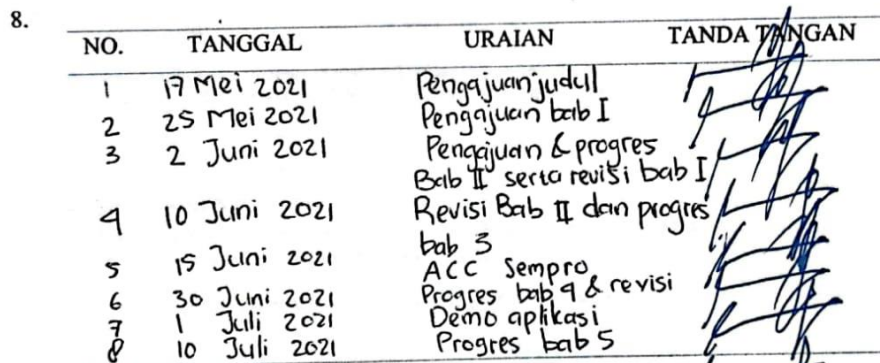 8.
NO. TANGGAL URAIAN TANDA TANGAN
1 17 Mei 2021 Pengajuan judul
2 25 Mei 2021 Pengajuan bab I
3 2 Juni 2021 Pengajuan & progres
Bab II serta revisi bab I
4 10 Juni 2021 Revisi Bab II dan progres
bab 3
5 15 Juni 2021 ACC Sempro
6 30 Juni 2021 Progres bab 4 & revisi
7 1 Juli 2021 Demo aplikasi
8 10 Juli 2021 Progres bab 5